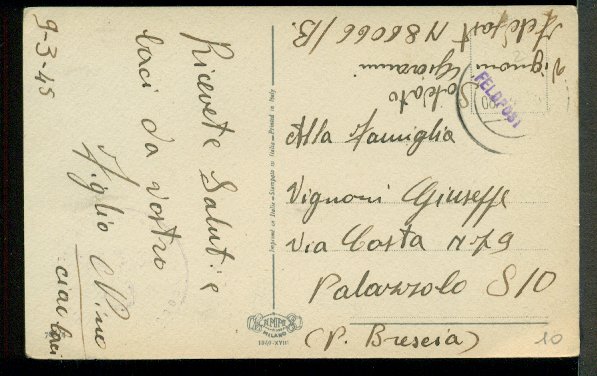 9-3-45
Ricevete Saluti e
baci da vostro
Figlio Nino
ciao baci
Soldato
Vignoni Giovanni
Feldpost N 86066/B.
FELDPOST
Alla Famiglia
Vignoni Giuseppe
Via Costa N 79
Palazzolo S/O
(P. Brescia)
Imprimé en Italie - Stampato in Italia - Printed in Italy
MILANO
1940-XVIII
10